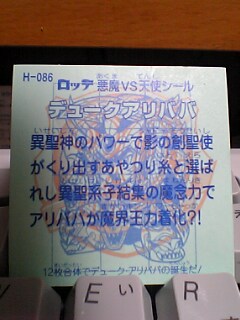 H-086 ロッテ 悪魔VS天使シール
デューク アリババ
異聖神のパワーで影の創聖使
がくり出すあやつり糸と選ば
れし異聖系子結集の魔念力で
アリババが魔界王力着化?!
12枚合体でデューク・アリババの誕生だ!
E い R